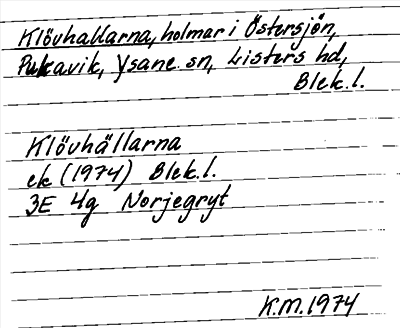 Klövhallarna, holmar i Östersjön,
Pukavik, Ysane sn, Listers hd,
Blek.l.
Klövhällarna
ek (1974) Blek.l.
3E 4g Norjegryt
K.M. 1974